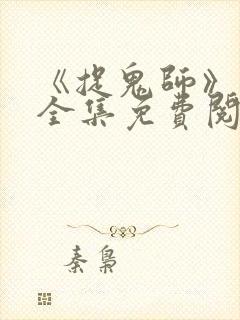 《捉鬼師》
全集免費閱
秦梟